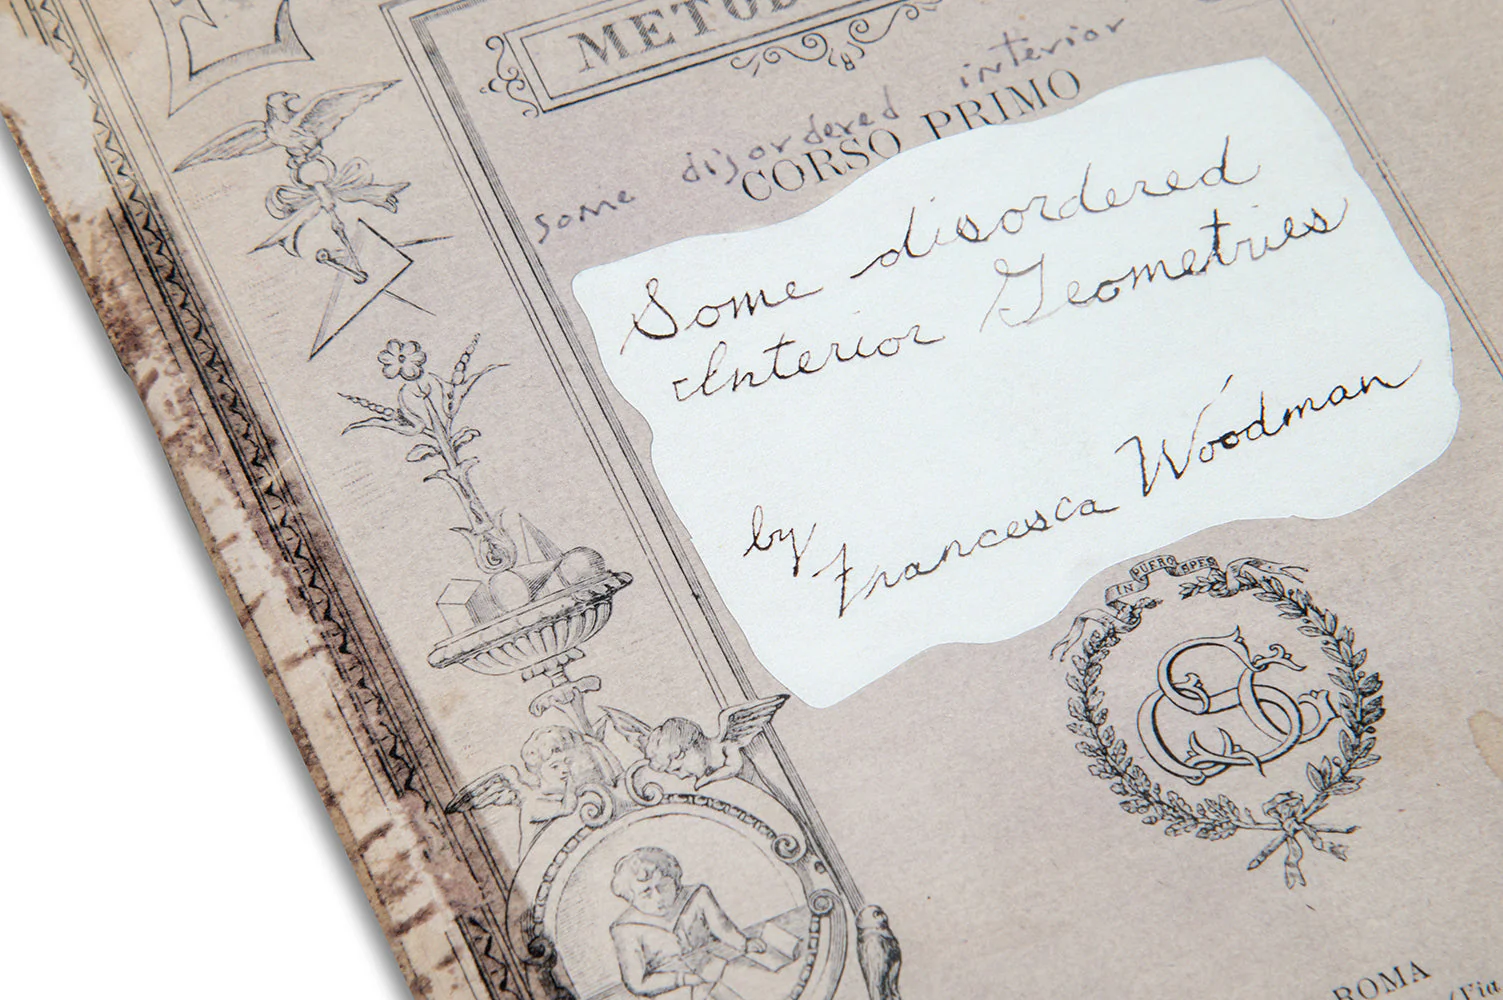 METOD
some disordered interior
CORSO PRIMO
Some disordered
Interior Geometries
by
Francesca Woodman
IN PUERO SPES
ROMA
(Via